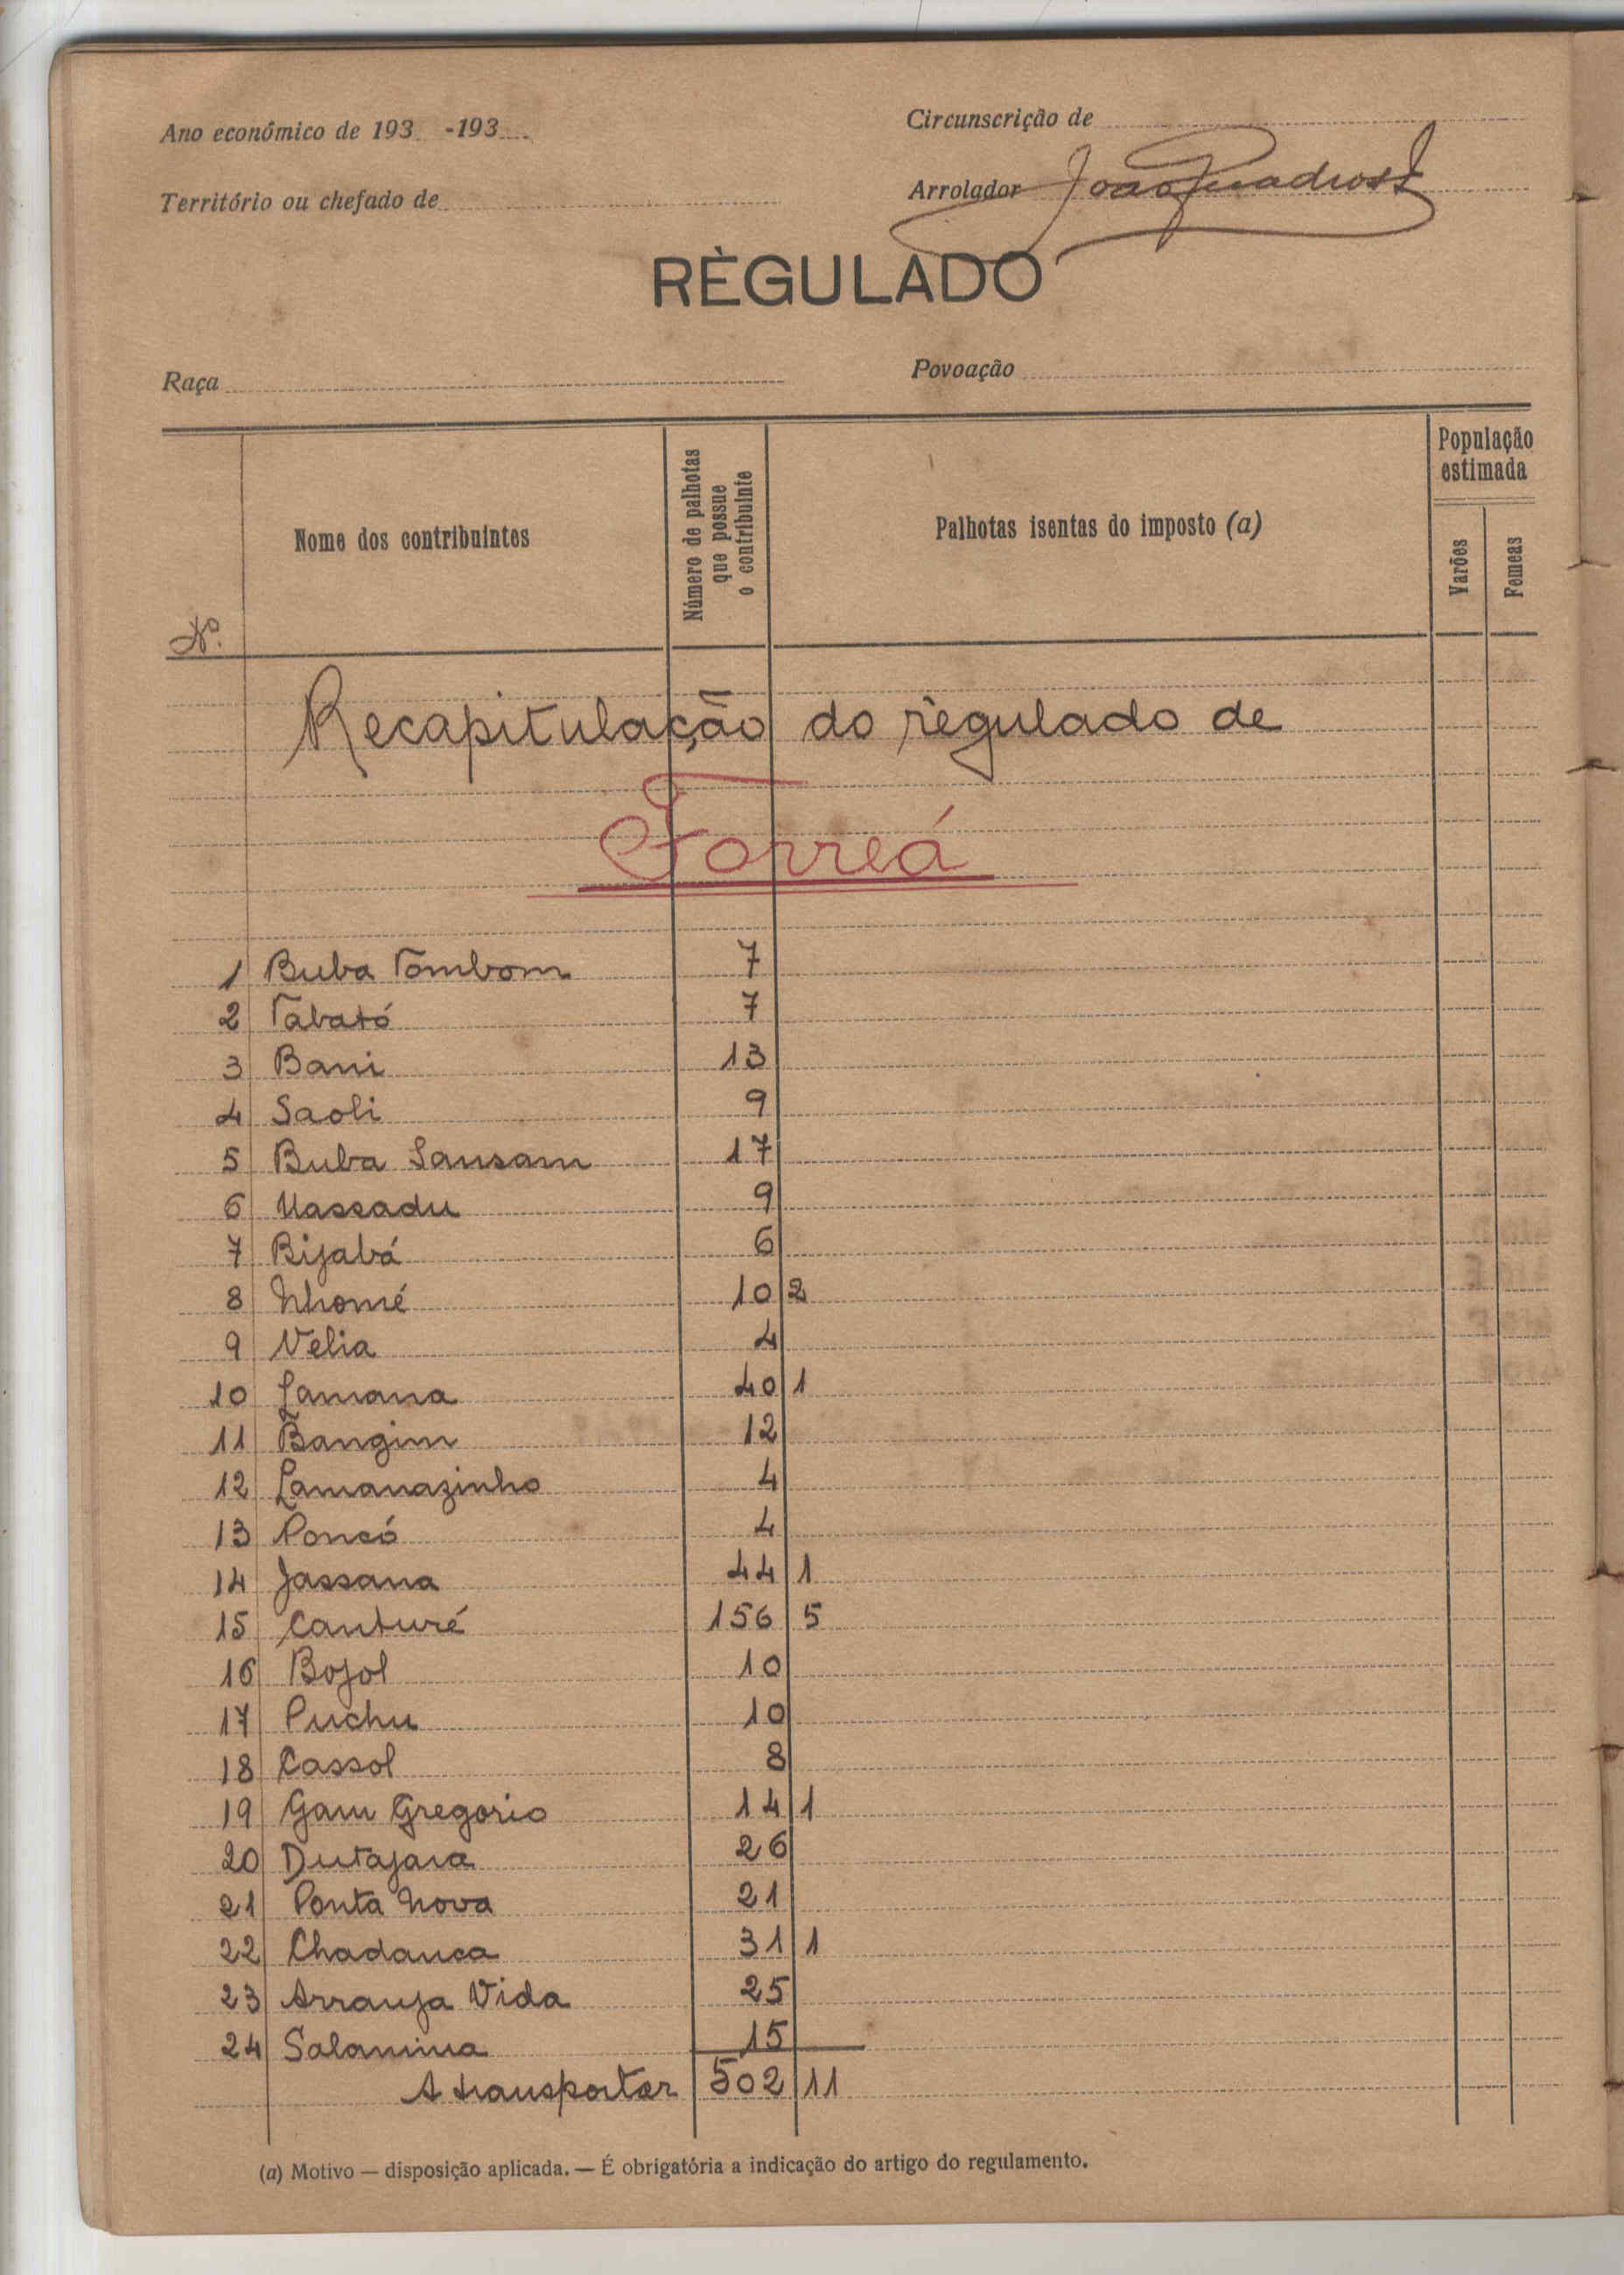 Ano económico de 193 -193
Circunscrição de
Território ou chefado de
Arrolador João Quadros
RÈGULADO
Raça
Povoação
Nº.
Nome dos contribuintes
Número de palhotas que possue o contribuinte
Palhotas isentas do imposto (a)
População estimada
Varões
Femeas
Recapitulação do règulado de
Forreá
1 Buba Tombom 7
2 Tabató 7
3 Bani 13
4 Saoli 9
5 Buba Sansam 17
6 Uassadu 9
7 Bijabá 6
8 Nhomé 10 2
9 Velia 4
10 Lamana 40 1
11 Bangim 12
12 Lamanazinho 4
13 Poncó 4
14 Jassana 44 1
15 Canturé 156 5
16 Bojol 10
17 Puchu 10
18 Cassol 8
19 Gam Gregorio 14 1
20 Dutajara 26
21 Ponta Nova 21
22 Chadanca 31 1
23 Arranja Vida 25
24 Salanina 15
A transportar 502 11
(a) Motivo — disposição aplicada. — É obrigatória a indicação do artigo do regulamento.